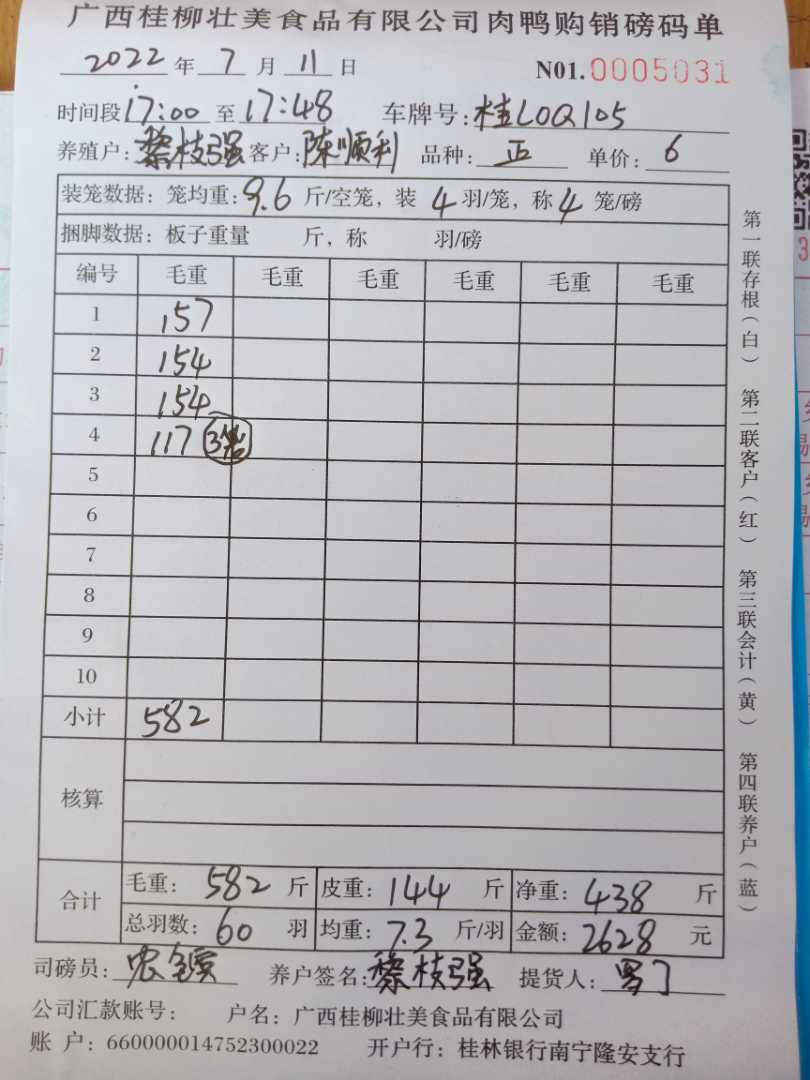 广西桂柳壮美食品有限公司肉鸭购销磅码单
2022 年 7 月 11 日 N01.0005031
时间段 17:00 至 17:48 车牌号: 桂LOQ105
养殖户: 黎枝强 客户: 陈顺利 品种: 正 单价: 6
装笼数据: 笼均重: 9.6 斤/空笼, 装 4 羽/笼, 称 4 笼/磅
捆脚数据: 板子重量 斤, 称 羽/磅
编号 毛重 毛重 毛重 毛重 毛重 毛重
1 157
2 154
3 154
4 117 3笼
5
6
7
8
9
10
小计 582
核算
合计 毛重: 582 斤 皮重: 144 斤 净重: 438 斤
总羽数: 60 羽 均重: 7.3 斤/羽 金额: 2628 元
司磅员: 养户签名: 黎枝强 提货人:
公司汇款账号: 户名: 广西桂柳壮美食品有限公司
账 户: 660000014752300022 开户行: 桂林银行南宁隆安支行
第一联存根(白) 第二联客户(红) 第三联会计(黄) 第四联养户(蓝)